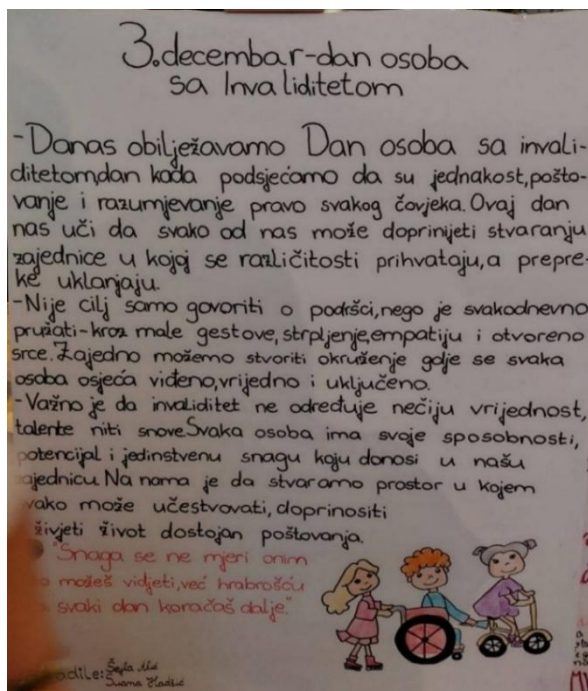 3. decembar-dan osoba
sa Invaliditetom
-Danas obilježavamo Dan osoba sa invali-
ditetom,dan kada podsjećamo da su jednakost,pošto-
vanje i razumjevanje pravo svakog čovjeka. Ovaj dan
nas uči da svako od nas može doprinijeti stvaranju
zajednice u kojoj se različitosti prihvataju, a prepre-
ke uklanjaju.
-Nije cilj samo govoriti o podršci, nego je svakodnevno
pružati-kroz male gestove, strpljenje, empatiju i otvoreno
srce. Zajedno možemo stvoriti okruženje gdje se svaka
osoba osjeća viđeno, vrijedno i uključeno.
-Važno je da invaliditet ne određuje nečiju vrijednost,
talente niti snove. Svaka osoba ima svoje sposobnosti,
potencijal i jedinstvenu snagu koju donosi u našu
zajednicu. Na nama je da stvaramo prostor u kojem
svako može učestvovati, doprinositi
živjeti život dostojan poštovanja.
"Snaga se ne mjeri onim
možeš vidjeti, već hrabrošću
svaki dan koračaš dalje."